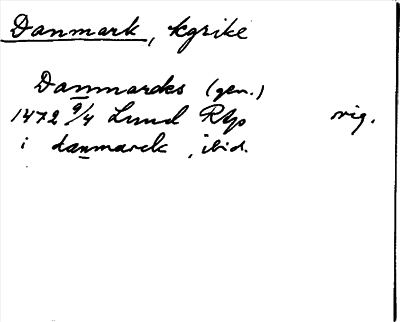 Danmark, kgrike
Danmarcks (gen.)
1472 9/4 Lund Rtp orig.
i danmarck, ibid.